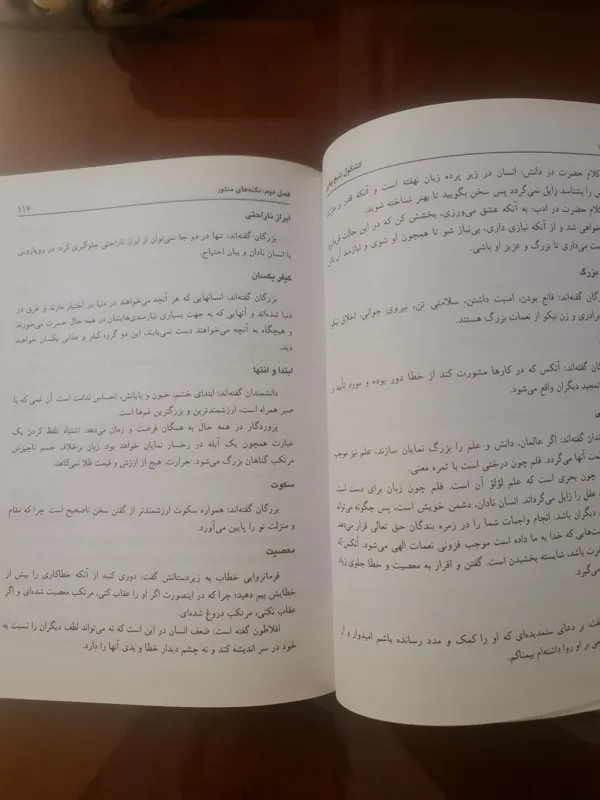 کشکول شیخ بهایی
کلام حضرت در دانش: انسان در زیر پرده زبان نهفته است و آنکه قدر و
را بشناسد زایل نمی‌گردد پس سخن بگویید تا بهتر شناخته شوید.
کلام حضرت در ادب، به آنکه عشق می‌ورزی، بخشش کن که در این حالت
خواهی شد و از آنکه نیازی داری، بی‌نیاز شو تا همچون او شوی و نیازمند آن
ست می‌داری تا بزرگ و عزیز او باشی.
بزرگ
گفته‌اند: قانع بودن، امنیت داشتن، سلامتی تن، نیروی جوانی، اخلاق
برادری و زن نیکو از نعمات بزرگ هستند.
گفته‌اند: آنکس که در کارها مشورت کند از خطا دور بوده و مورد تأیید و
تمجید دیگران واقع می‌شود.
گفته‌اند: اگر عالمان، دانش و علم را بزرگ نمایان سازند، علم نیز موجب
آنها می‌گردد. قلم چون درختی است با ثمره معنی.
چون بحری است که علم لؤلؤ آن است. قلم چون زبان برای دست است
عقل را زایل می‌گرداند. انسان نادان، دشمن خویش است، پس چگونه می‌تواند
دیگران باشد. انجام واجبات شما را در زمره بندگان حق تعالی قرار می‌دهد.
که خدا به ما داده است موجب فزونی نعمات الهی می‌شود. آنکس که
باشد، شایسته بخشیدن است. گفتن و اقرار به معصیت و خطا جلوی
می‌گیرد.
بر دعای ستمدیده‌ای که او را کمک و مدد رسانده باشم امیدوار و از
بر او روا داشته‌ام بیمناکم.
فصل دوم: نکته‌های منثور
۱۱۷
ابراز ناراحتی
بزرگان گفته‌اند: تنها در دو جا نمی‌توان از ابراز ناراحتی جلوگیری کرد، در رویارویی
با انسان نادان و بیان احتیاج.
کیفر یکسان
بزرگان گفته‌اند: انسانهایی که هر آنچه می‌خواهند در دنیا در اختیار دارند و غرق در
دنیا شده‌اند و آنهایی که به جهت بسیاری نیازمندی‌هایشان در همه حال حسرت می‌خورند
و هیچگاه به آنچه می‌خواهند دست نمی‌یابند. این دو گروه کیفر و عذابی یکسان خواهند
دید.
ابتدا و انتها
دانشمندان گفته‌اند: ابتدای خشم، خون و پایانش، احساس ندامت است. آن غمی که با
صبر همراه است، ارزشمندترین و بزرگترین غم‌ها است.
پروردگار در همه حال به همگان فرصت و زمان می‌دهد. اشتباه تلفظ کردن یک
عبارت همچون یک آبله در رخسار نمایان خواهد بود. زبان برخلاف جسم ناچیزش
مرتکب گناهان بزرگ می‌شود. حرارت، هیچ از ارزش و قیمت طلا نمی‌کاهد.
سکوت
بزرگان گفته‌اند: همواره سکوت ارزشمندتر از گفتن سخن ناصحیح است. چرا که مقام
و منزلت تو را پایین می‌آورد.
معصیت
فرمانروایی خطاب به زیردستانش گفت: دوری کنید از آنکه خطاکاری را بیش از
خطایش بیم دهید؛ چرا که در اینصورت اگر او را عقاب کنی، مرتکب معصیت شده‌ای و اگر
عقاب نکنی، مرتکب دروغ شده‌ای.
افلاطون گفته است: ضعف انسان در این است که نه می‌تواند لطف دیگران را نسبت به
خود در سر اندیشه کند و نه چشم دیدار خطا و بدی آنها را دارد.